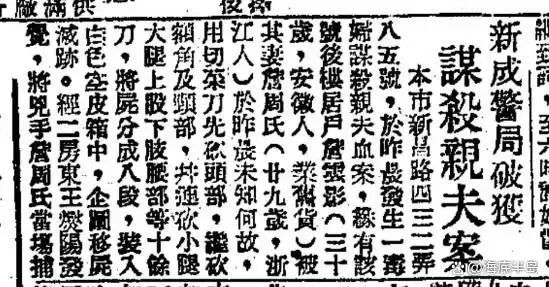 新成警局破獲
謀殺親夫案
本市新昌路四三二弄
八五號,於昨晨發生一毒
婦謀殺親夫血案,緣有該
號後樓居戶詹雲影(三十
歲,安徽人,業貨)被
其妻詹周氏(廿九歲,浙
江人)於昨晨未知何故,
用切菜刀先砍頭部,繼砍
額角及頸部,共連砍小腿
大腿上股下肢腰部等十餘
刀,將屍分成八段,裝入
白色空皮箱中,企圖移屍
滅跡。經二房東王燮陽發
覺,將兇手詹周氏當場捕
@海底半岛